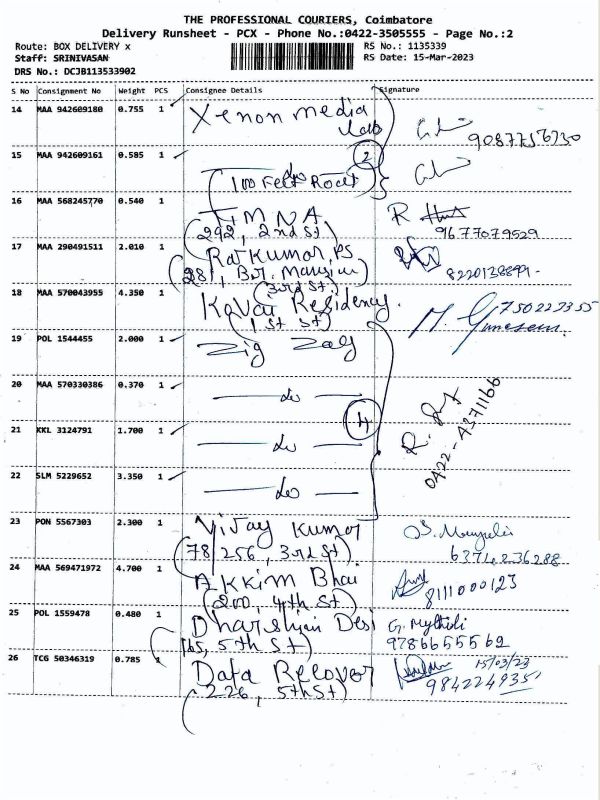 THE PROFESSIONAL COURIERS, Coimbatore
Delivery Runsheet - PCX - Phone No.:0422-3505555 - Page No.:2
Route: BOX DELIVERY x
RS No.: 1135339
Staff: SRINIVASAN
RS Date: 15-Mar-2023
DRS No.: DCJB113533902
S No Consignment No Weight PCS Consignee Details Signature
14 MAA 942609180 0.755 1 Xenon media
9087756730
15 MAA 942609161 0.585 1 2
100 Feet
16 MAA 568245770 0.540 1
(292, 2nd St) 9677079529
17 MAA 290491511 2.010 1 Raj Kumar
(3rd St)
18 MAA 570043955 4.350 1 Kovai Residency.
(1st St)
19 POL 1544455 2.000 1 Zig Zag
20 MAA 570330386 0.370 1 do
4
21 KKL 3124791 1.700 1 do
0422-4371166
22 SLM 5229652 3.350 1 do
23 PON 5567303 2.300 1 Vijay Kumar
(78/256, 3rd St) 6374236288
24 MAA 569471972 4.700 1 Akkim Bhai
(200, 4th St) 8111000123
25 POL 1559478 0.480 1 Dharshini Desi G. Mythili
5th St) 9786655562
26 TCG 50346319 0.785 1 Data Recover 15/03/23
226, 5th St) 9842249351